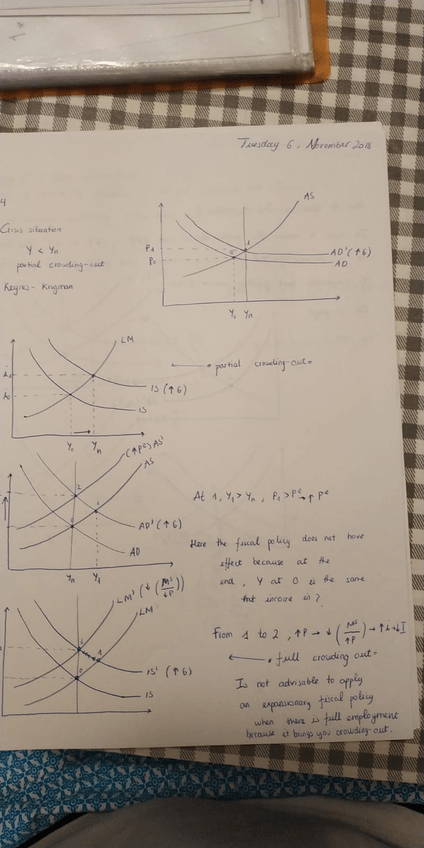 Tuesday 6, November 2018
4
Crisis situation
Y < Yn
partial crowding-out
Keynes - Krugman
AS
P1
P0
1
0
AD' (↑G)
AD
Y0 Yn
LM
partial crowding-out
IS (↑G)
IS
Y0 → Yn
(↑Pe) AS'
AS
2
1
0
AD' (↑G)
AD
Yn Y1
At 1, Y1 > Yn, P1 > Pe → ↑Pe
Here the fiscal policy does not have
effect because at the
end, Y at 0 is the same
that income in 2.
LM' (↓ (Ms/↓P))
LM
2
1
0
IS' (↑G)
IS
From 1 to 2, ↑P → ↓ (Ms/↑P) → ↑i → ↓I
full crowding out
Is not advisable to apply
an expansionary fiscal policy
when there is full employment
because it brings you crowding-out.